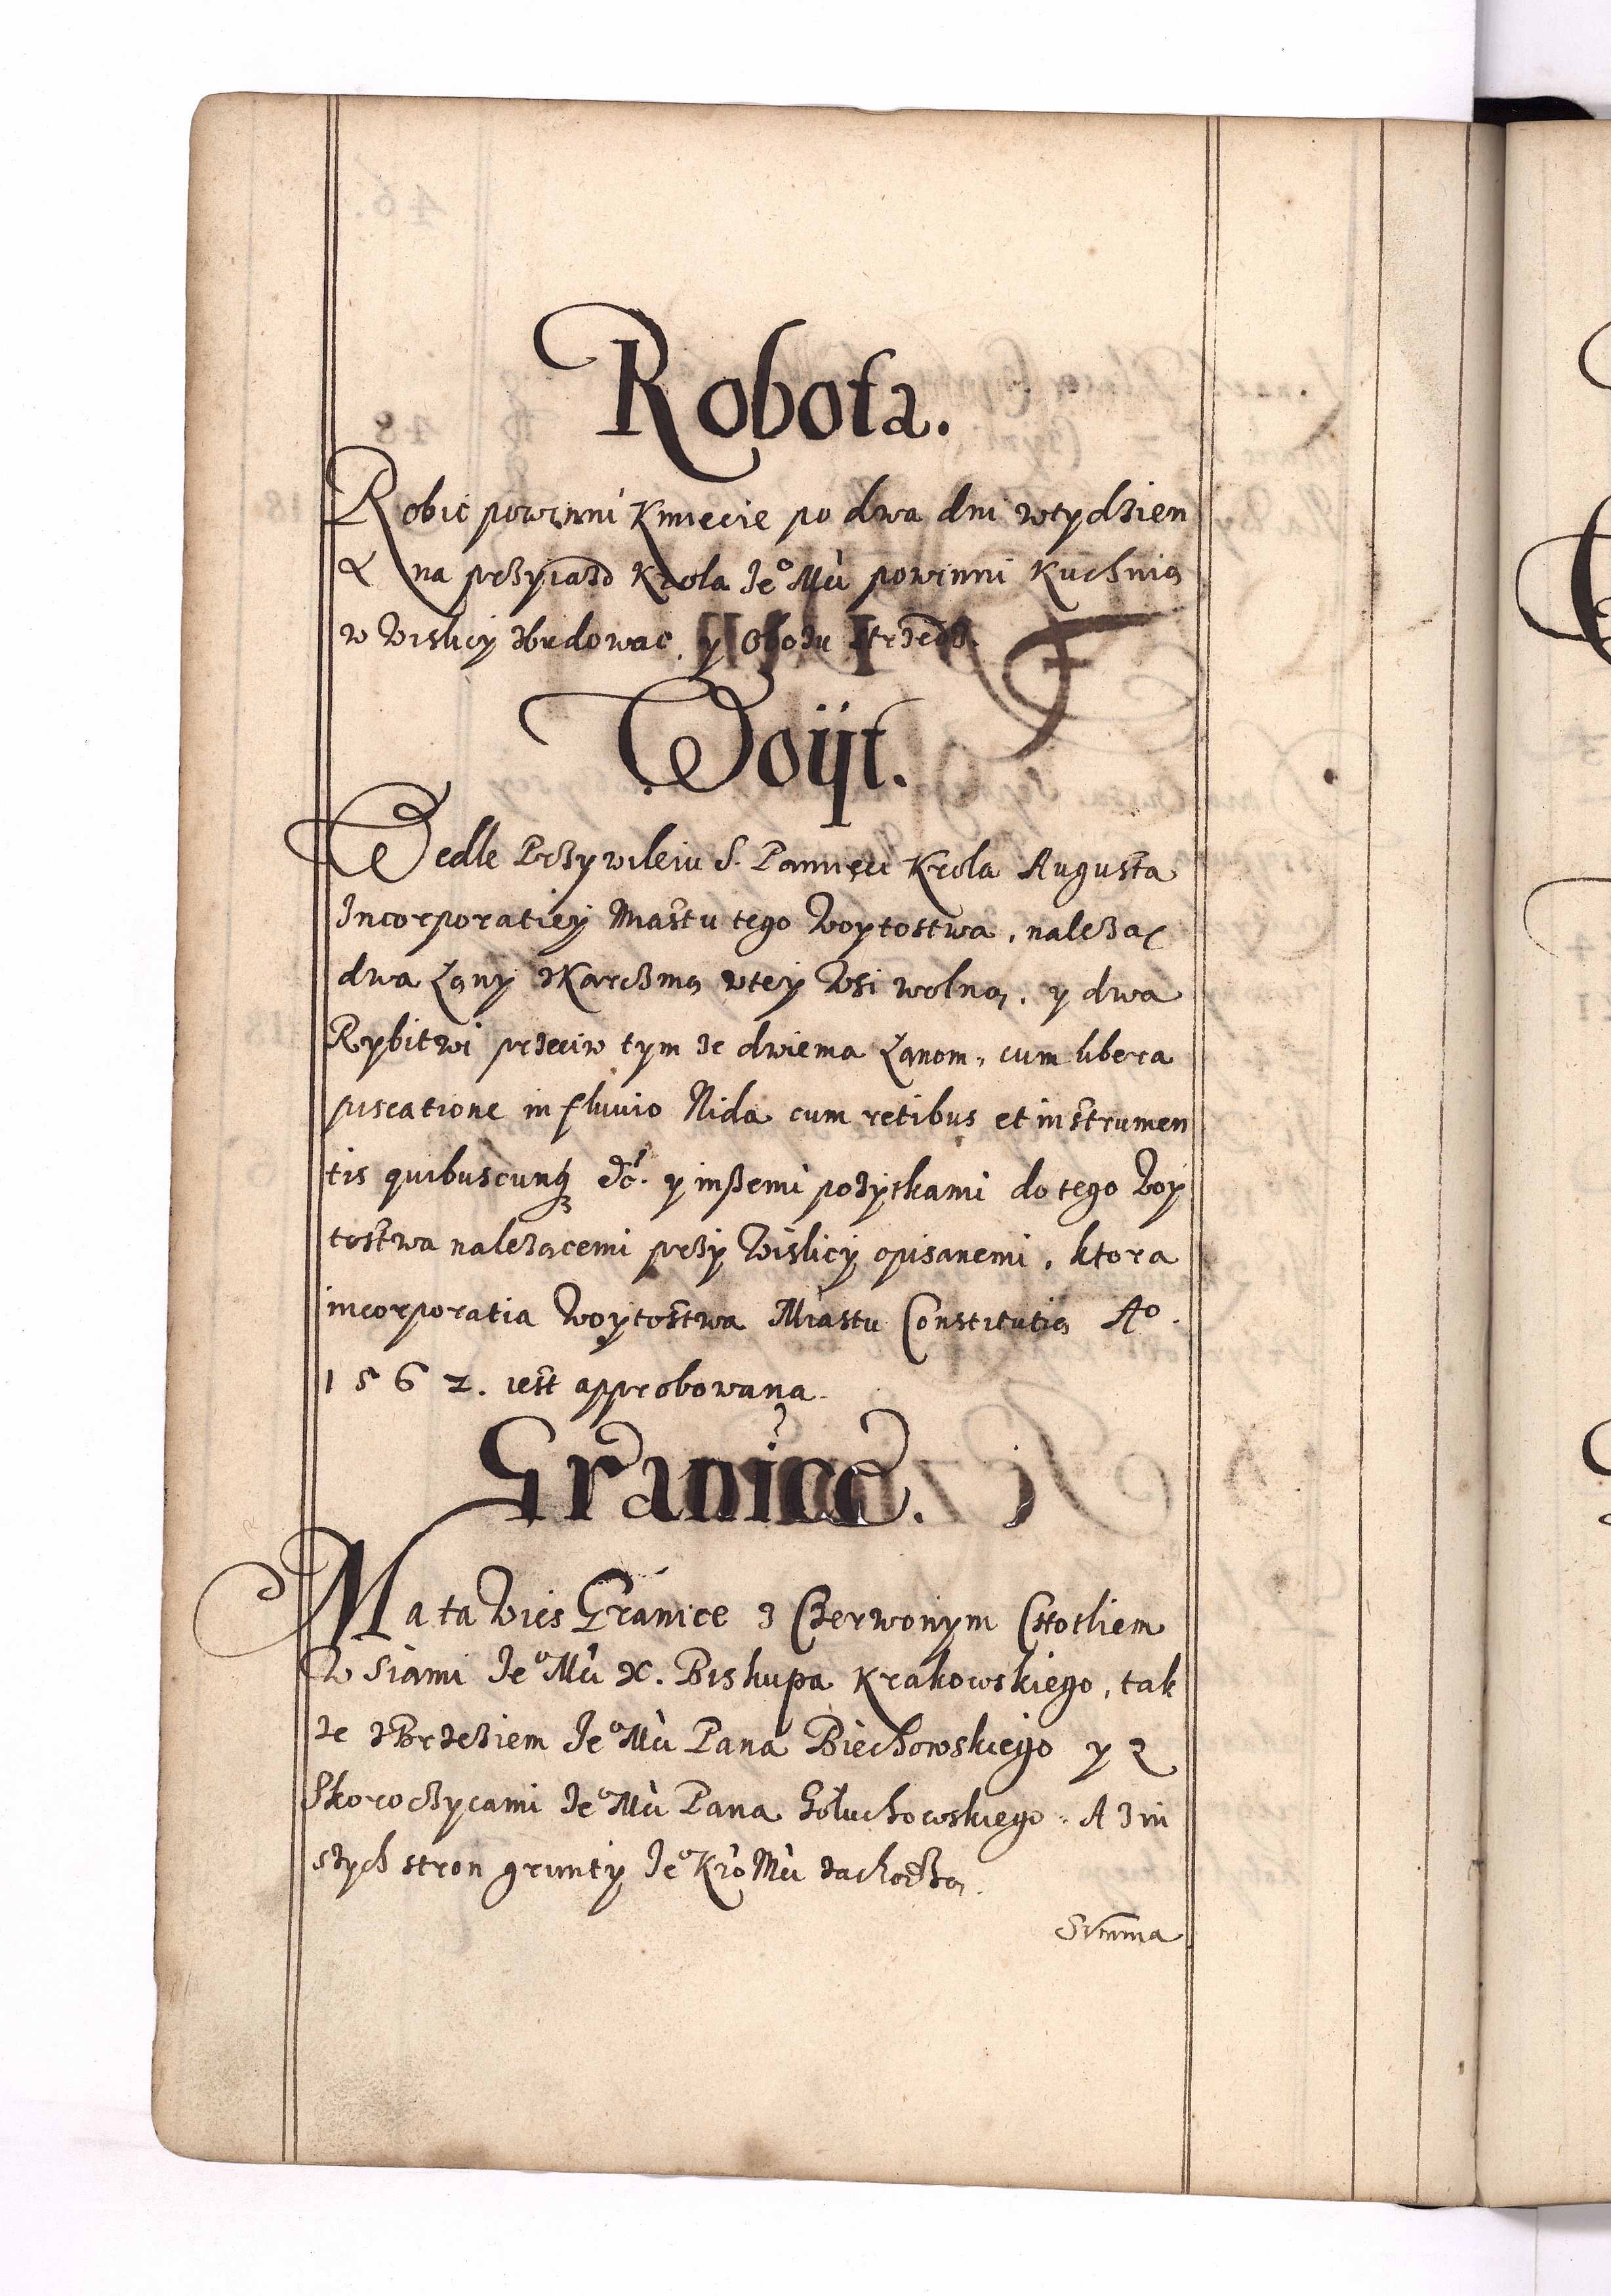 Robota.
Robic powinni Kmiecie po dwa dni wtydzien
A na przyiazd Krola Je° Mci powinni Kuchnią
w Wislicy zbudowac, y Obozu strzedz.
Woijt.
Wedle Przywileiu S. Pamięci Krola Augusta
Incorporatiey Miastu tego Woytostwa, należą
dwa Łany zKarczmą wtey Wsi wolną, y dwa
Rybitwi przeciw tym ze dwiema Łanom, cum libera
piscatione in fluvio Nida cum retibus et instrumen
tis quibuscunq; &c. y inßemi pożytkami do tego Woy
tostwa należącemi przy Wislicy opisanemi, ktora
incorporatia Woytostwa Miastu Constitutią A°.
1562. iest approbowana.
Granice.
Ma ta Wies Granice z Czerwonym Chotliem
W Siami Je° Mci X. Biskupa Krakowskiego, tak
ze zBrzeziem Je° Mci Pana Biechowskiego y z
Skoroczycami Je° Mci Pana Gołuchowskiego. A z in
szych stron grunty Je° Kro Mci zachodzą.
Summa